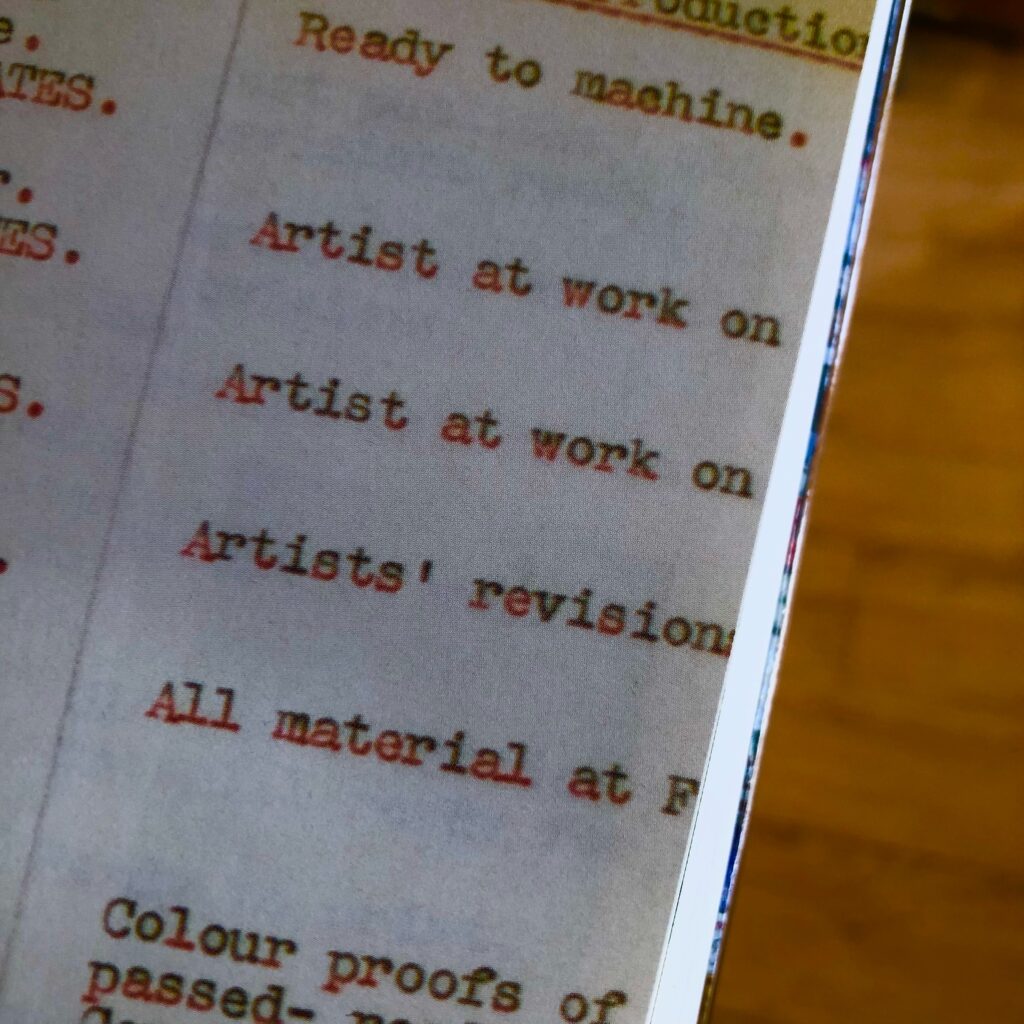 Ready to machine.
Artist at work on
Artist at work on
Artists' revisions
All material at F
Colour proofs of
passed-